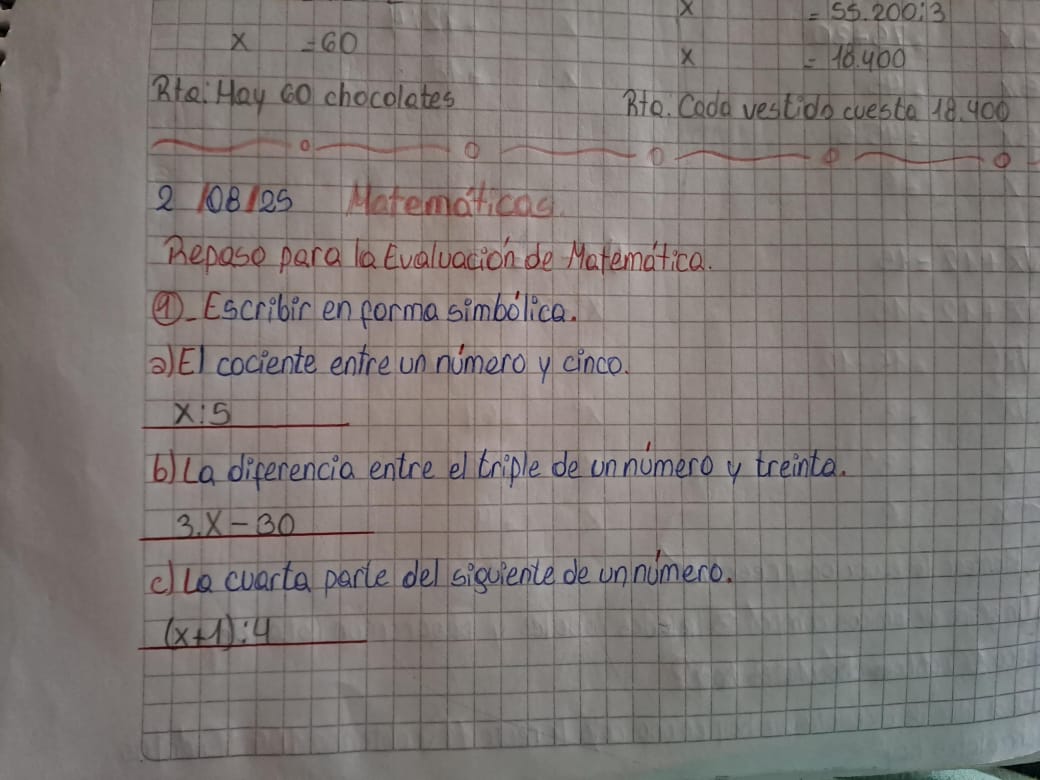 x = 55.200:3
x = 60
x = 18.400
Rta: Hay 60 chocolates
Rta. Cada vestido cuesta 18.400
2/08/25 Matemáticas.
Repaso para la Evaluación de Matemática.
①_ Escribir en forma simbólica.
a) El cociente entre un número y cinco.
x:5
b) La diferencia entre el triple de un número y treinta.
3.x-30
c) La cuarta parte del siguiente de un número.
(x+1):4